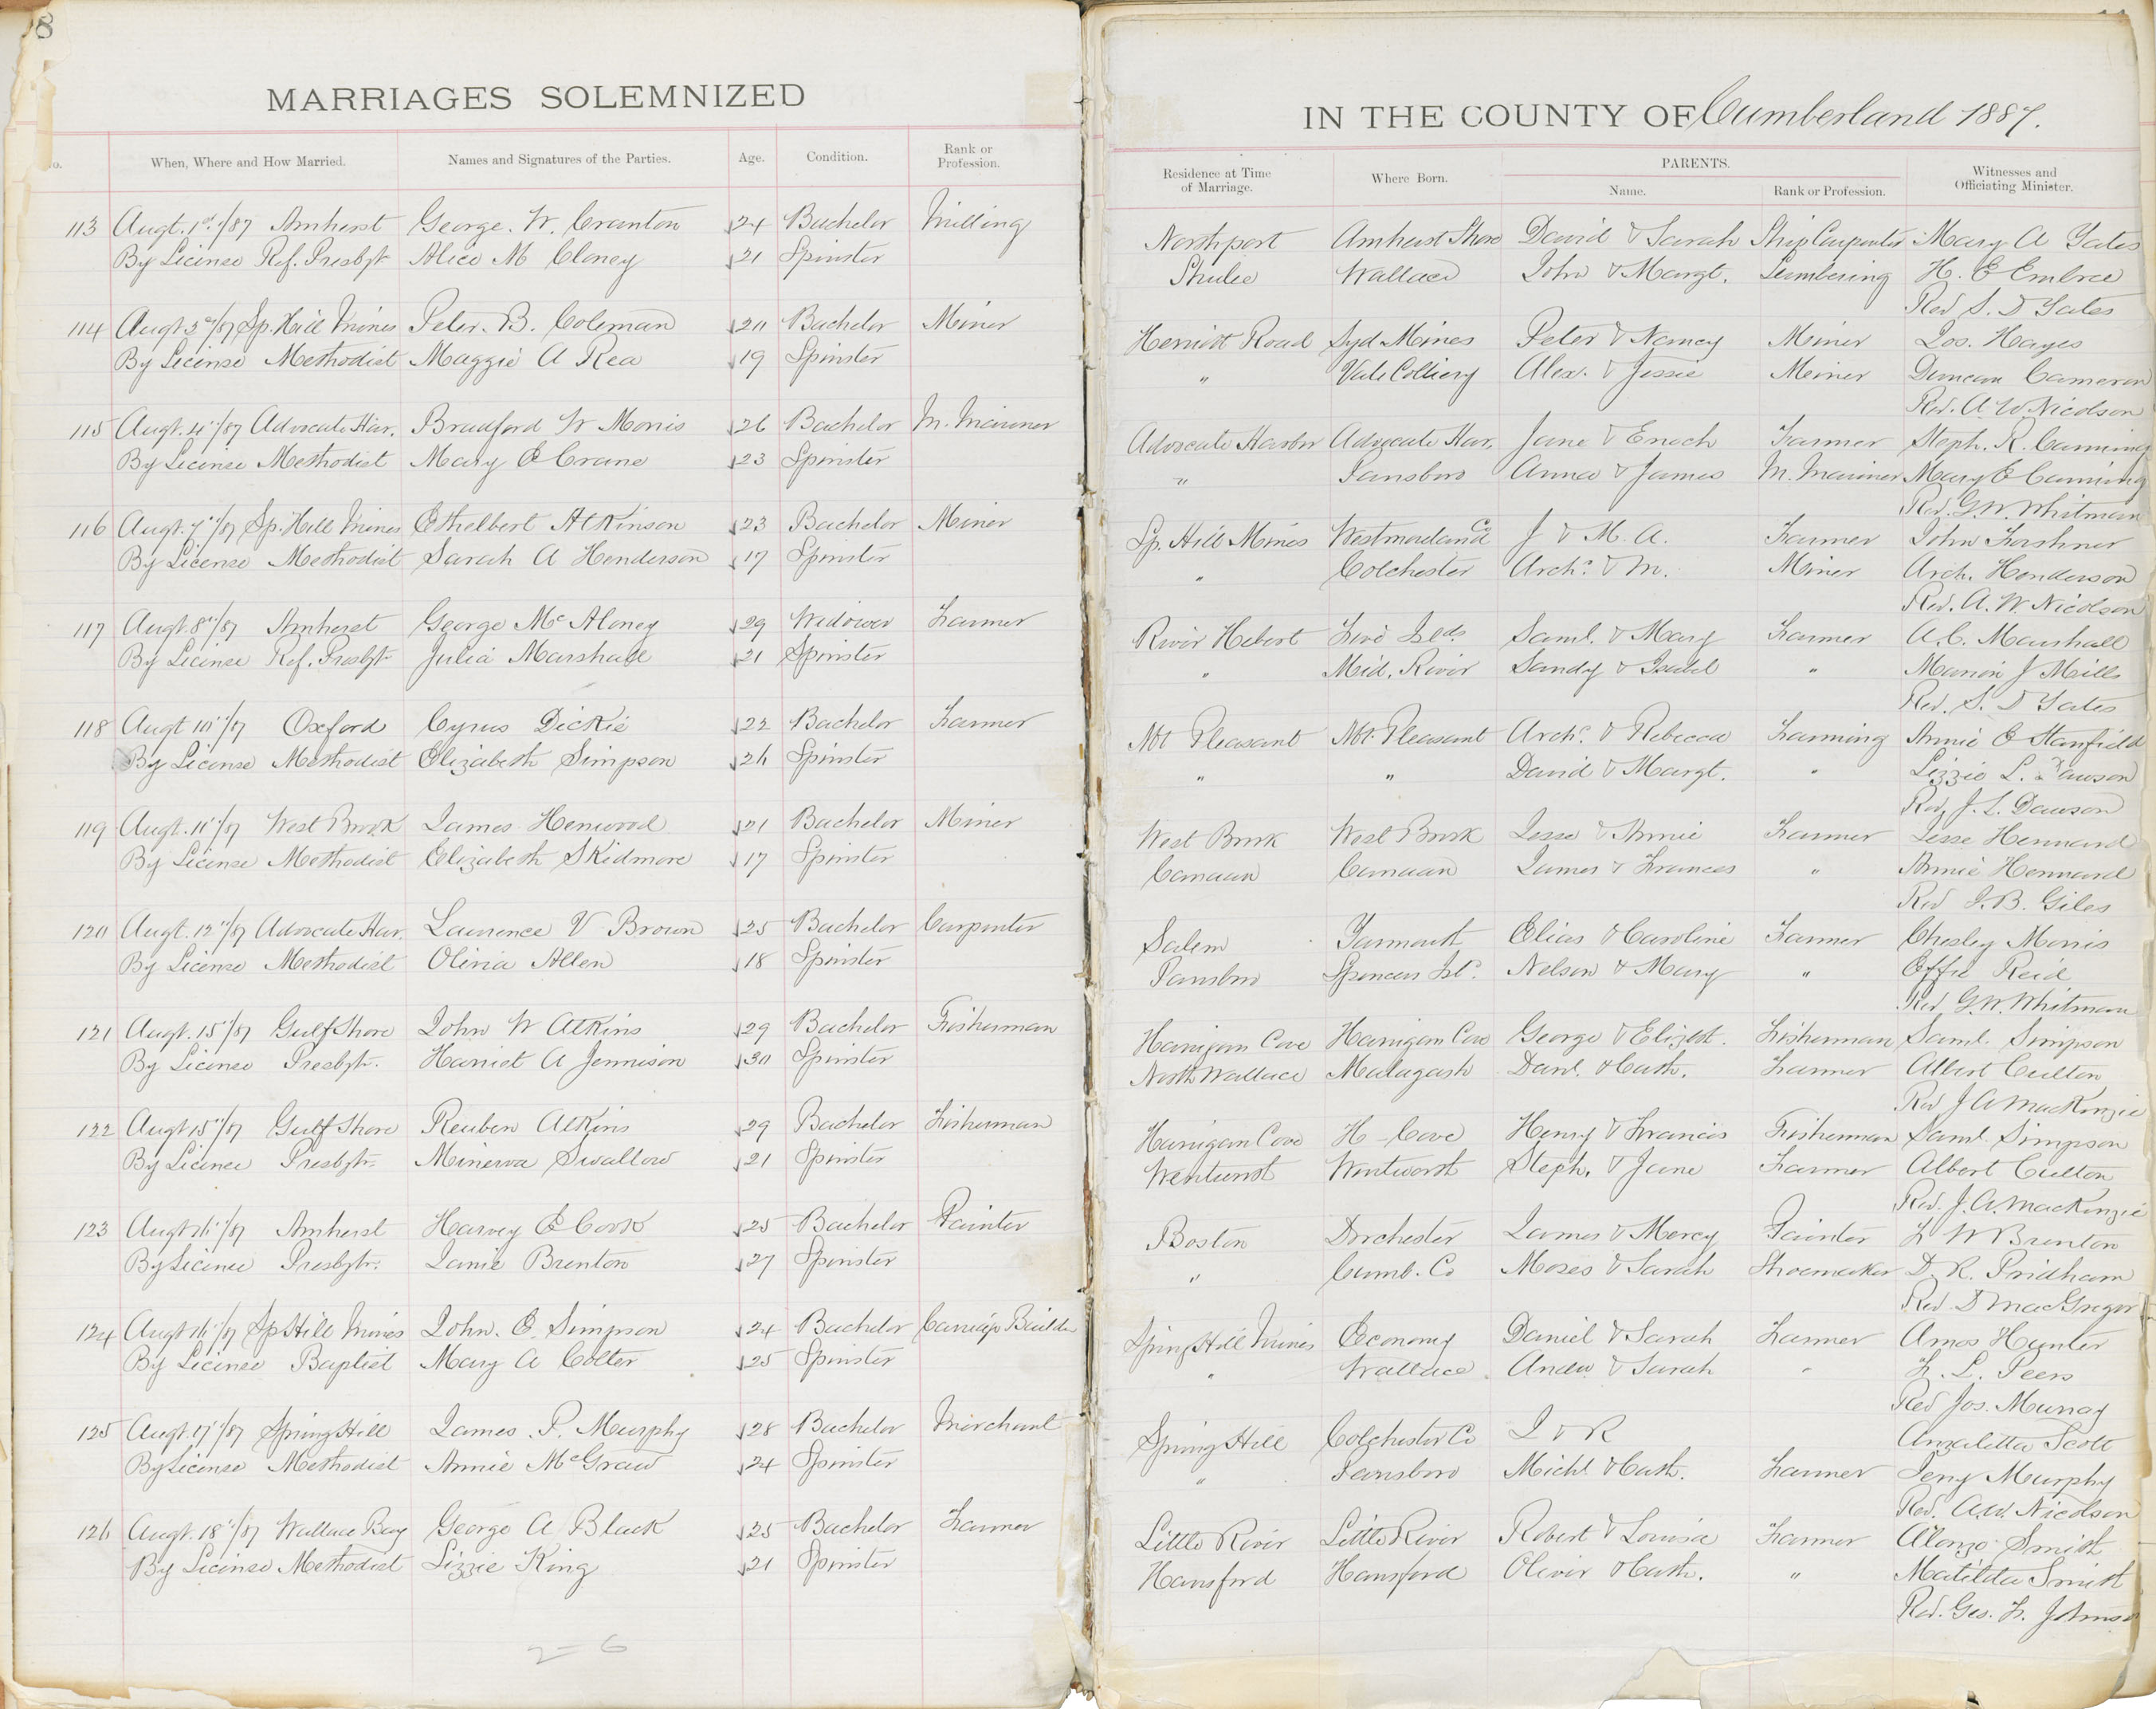 8
MARRIAGES SOLEMNIZED
When, Where and How Married. Names and Signatures of the Parties. Age. Condition. Rank or Profession.
113 Augt. 1st/87 Amherst George. W. Cranton 24 Bachelor Milling
By License Ref. Presbyt Alice M Cloney 21 Spinster
114 Augt 3"/87 Sp. Hill Mines Peter. B. Coleman 20 Bachelor Miner
By License Methodist Maggie A Rea 19 Spinster
115 Augt. 4"/87 Advocate Har. Bradford W Morris 26 Bachelor M. Mariner
By License Methodist Mary E Crane 23 Spinster
116 Augt. 7"/87 Sp. Hill Mines Ethelbert Atkinson 23 Bachelor Miner
By License Methodist Sarah A Henderson 17 Spinster
117 Augt. 8"/87 Amherst George McAloney 29 Widower Farmer
By License Ref. Presbyt Julia Marshall 21 Spinster
118 Augt 10"/87 Oxford Cyrus Dickie 22 Bachelor Farmer
By License Methodist Elizabeth Simpson 26 Spinster
119 Augt. 11"/87 West Brook James Henwood 21 Bachelor Miner
By License Methodist Elizabeth Skidmore 17 Spinster
120 Augt. 12"/87 Advocate Har. Lawrence V Brown 25 Bachelor Carpenter
By License Methodist Olivia Allen 18 Spinster
121 Augt. 15"/87 Gulf Shore John W Atkins 29 Bachelor Fisherman
By License Presbyt. Harriet A Jennison 30 Spinster
122 Augt 15"/87 Gulf Shore Reuben Atkins 29 Bachelor Fisherman
By License Presbytr. Minerva Swallow 21 Spinster
123 Augt 16"/87 Amherst Harvey E Cook 25 Bachelor Painter
By License Presbytr. Janie Brenton 27 Spinster
124 Augt 16"/87 Sp Hill Mines John. E. Simpson 24 Bachelor Carriage Builder
By License Baptist Mary A Colter 25 Spinster
125 Augt. 17"/87 Spring Hill James. P. Murphy 28 Bachelor Merchant
By License Methodist Annie McGraw 24 Spinster
126 Augt. 18"/87 Wallace Bay George A Black 25 Bachelor Farmer
By License Methodist Lizzie King 21 Spinster
2=6
IN THE COUNTY OF Cumberland 1887.
Residence at Time of Marriage. Where Born. PARENTS. Name. Rank or Profession. Witnesses and Officiating Minister.
Northport Amherst Shore David & Sarah Ship Carpenter Mary A Yates
Shulee Wallace John & Margt. Lumbering H. E Embree
Rev S. D Yates
Herriot Road Syd Mines Peter & Nancy Miner Jos. Hayes
" Vale Colliery Alex. & Jessie Miner Duncan Cameron
Rev. A. W Nicolson
Advocate Harbor Advocate Har. Jane & Enoch Farmer Steph. R. Canning
" Parrsboro Anna & James M. Mariner Mary E Canning
Rev. G. W. Whitman
Sp. Hill Mines Westmorland Co J & M. A. Farmer John Forshner
" Colchester Archd. & M. Miner Arch. Henderson
Rev. A. W Nicolson
River Hebert Five Ilds. Saml. & Mary Farmer A. C. Marshall
" Mid. River Sandy & Isabel " Marion J Mills
Rev. S. D Yates
Mt Pleasant Mt. Pleasant Archd. & Rebecca Farming Annie E Stanfield
" " David & Margt. " Lizzie L. Dawson
Rev J. L. Dawson
West Brook West Brook Jesse & Annie Farmer Jesse Henward
Canaan Canaan James & Frances " Annie Henward
Rev J. B. Giles
Salem Yarmouth Elias & Caroline Farmer Chesley Morris
Parrsboro Spencers Isld. Nelson & Mary " Effie Reid
Rev G. W. Whitman
Hanigan Cove Hanigan Cove George & Elizbt. Fisherman Saml. Simpson
North Wallace Malagash Danl. & Cath. Farmer Albert Culton
Rev J A MacKenzie
Hanigan Cove H - Cove Henry & Francis Fisherman Saml Simpson
Wentworth Wentworth Steph. & Jane Farmer Albert Culton
Rev. J. A. MacKenzie
Boston Dorchester James & Mercy Painter F W Brenton
" Cumb. Co Moses & Sarah Shoemaker D. R. Pridham
Rev D MacGregor
Spring Hill Mines Economy Daniel & Sarah Farmer Amos Hunter
" Wallace Andw & Sarah " F. L. Peers
Rev Jos. Murray
Spring Hill Colchester Co J & R Anzaletta Scott
" Parrsboro Michl & Cath. Farmer Jeny Murphy
Rev. A. W. Nicolson
Little River Little River Robert & Louisa Farmer Alonzo Smith
Hansford Hansford Oliver & Cath. " Matilda Smith
Rev. Geo. F. Johnson